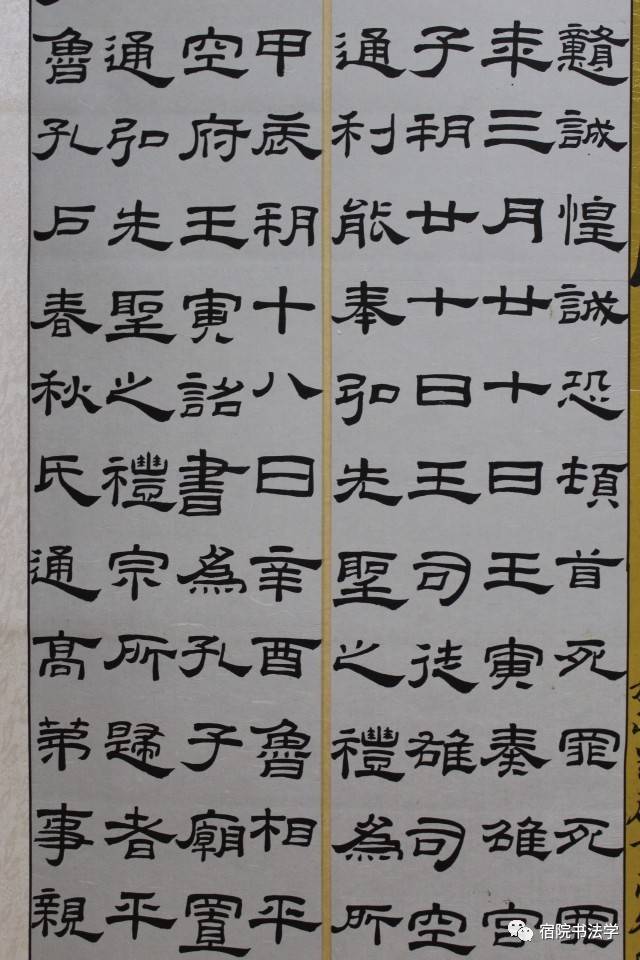 戇誠惶誠恐頓首死罪死罪
年三月廿七日壬寅奏雒宮
子朔廿七日壬司徒雄司空
通利能奉弘先聖之禮為所
甲辰朔十八日辛酉魯相平
空府壬寅詔書為孔子廟置
通弘先聖之禮宗所歸者平
魯孔戶春秋氏通高第事親
宿院书法学